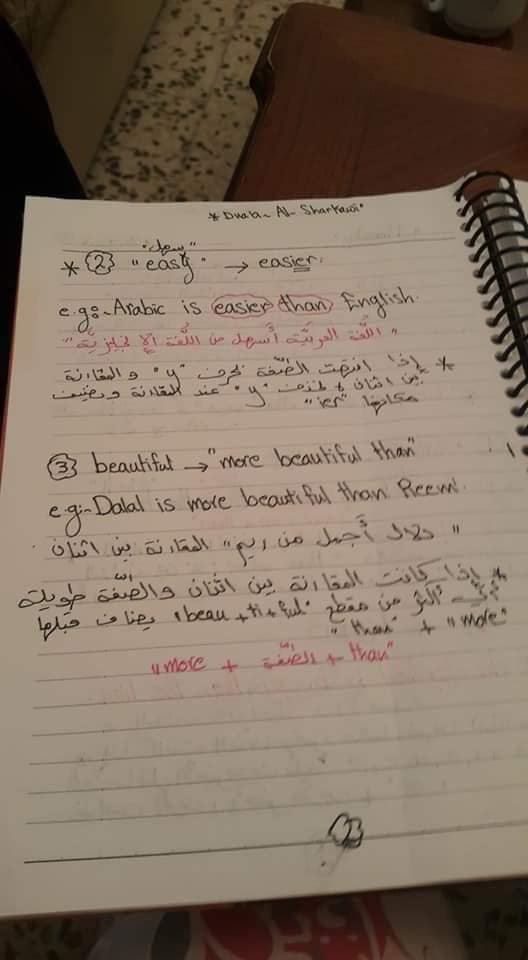 * Duaa Al-Sharkawi
"سهل"
* 2 "easy" → easier.
e.g:- Arabic is easier than English.
"اللُّغة العربيَّة أسهل من اللُّغة الإنجليزيَّة"
* إذا انتهت الصِّفة بحرف "y" والمقارنة
بين اثنان "y" عند المقارنة ونضيف
مكانها "ier"
3 beautiful → "more beautiful than"
e.g:- Dalal is more beautiful than Reem.
"دلال أجمل من ريم" المقارنة بين اثنان
* إذا كانت المقارنة بين اثنان والصِّفة طويلة
أكثر من مقطع "beau + ti + ful" يضاف قبلها
"more" + "than"
"more + الصِّفة + than"
2